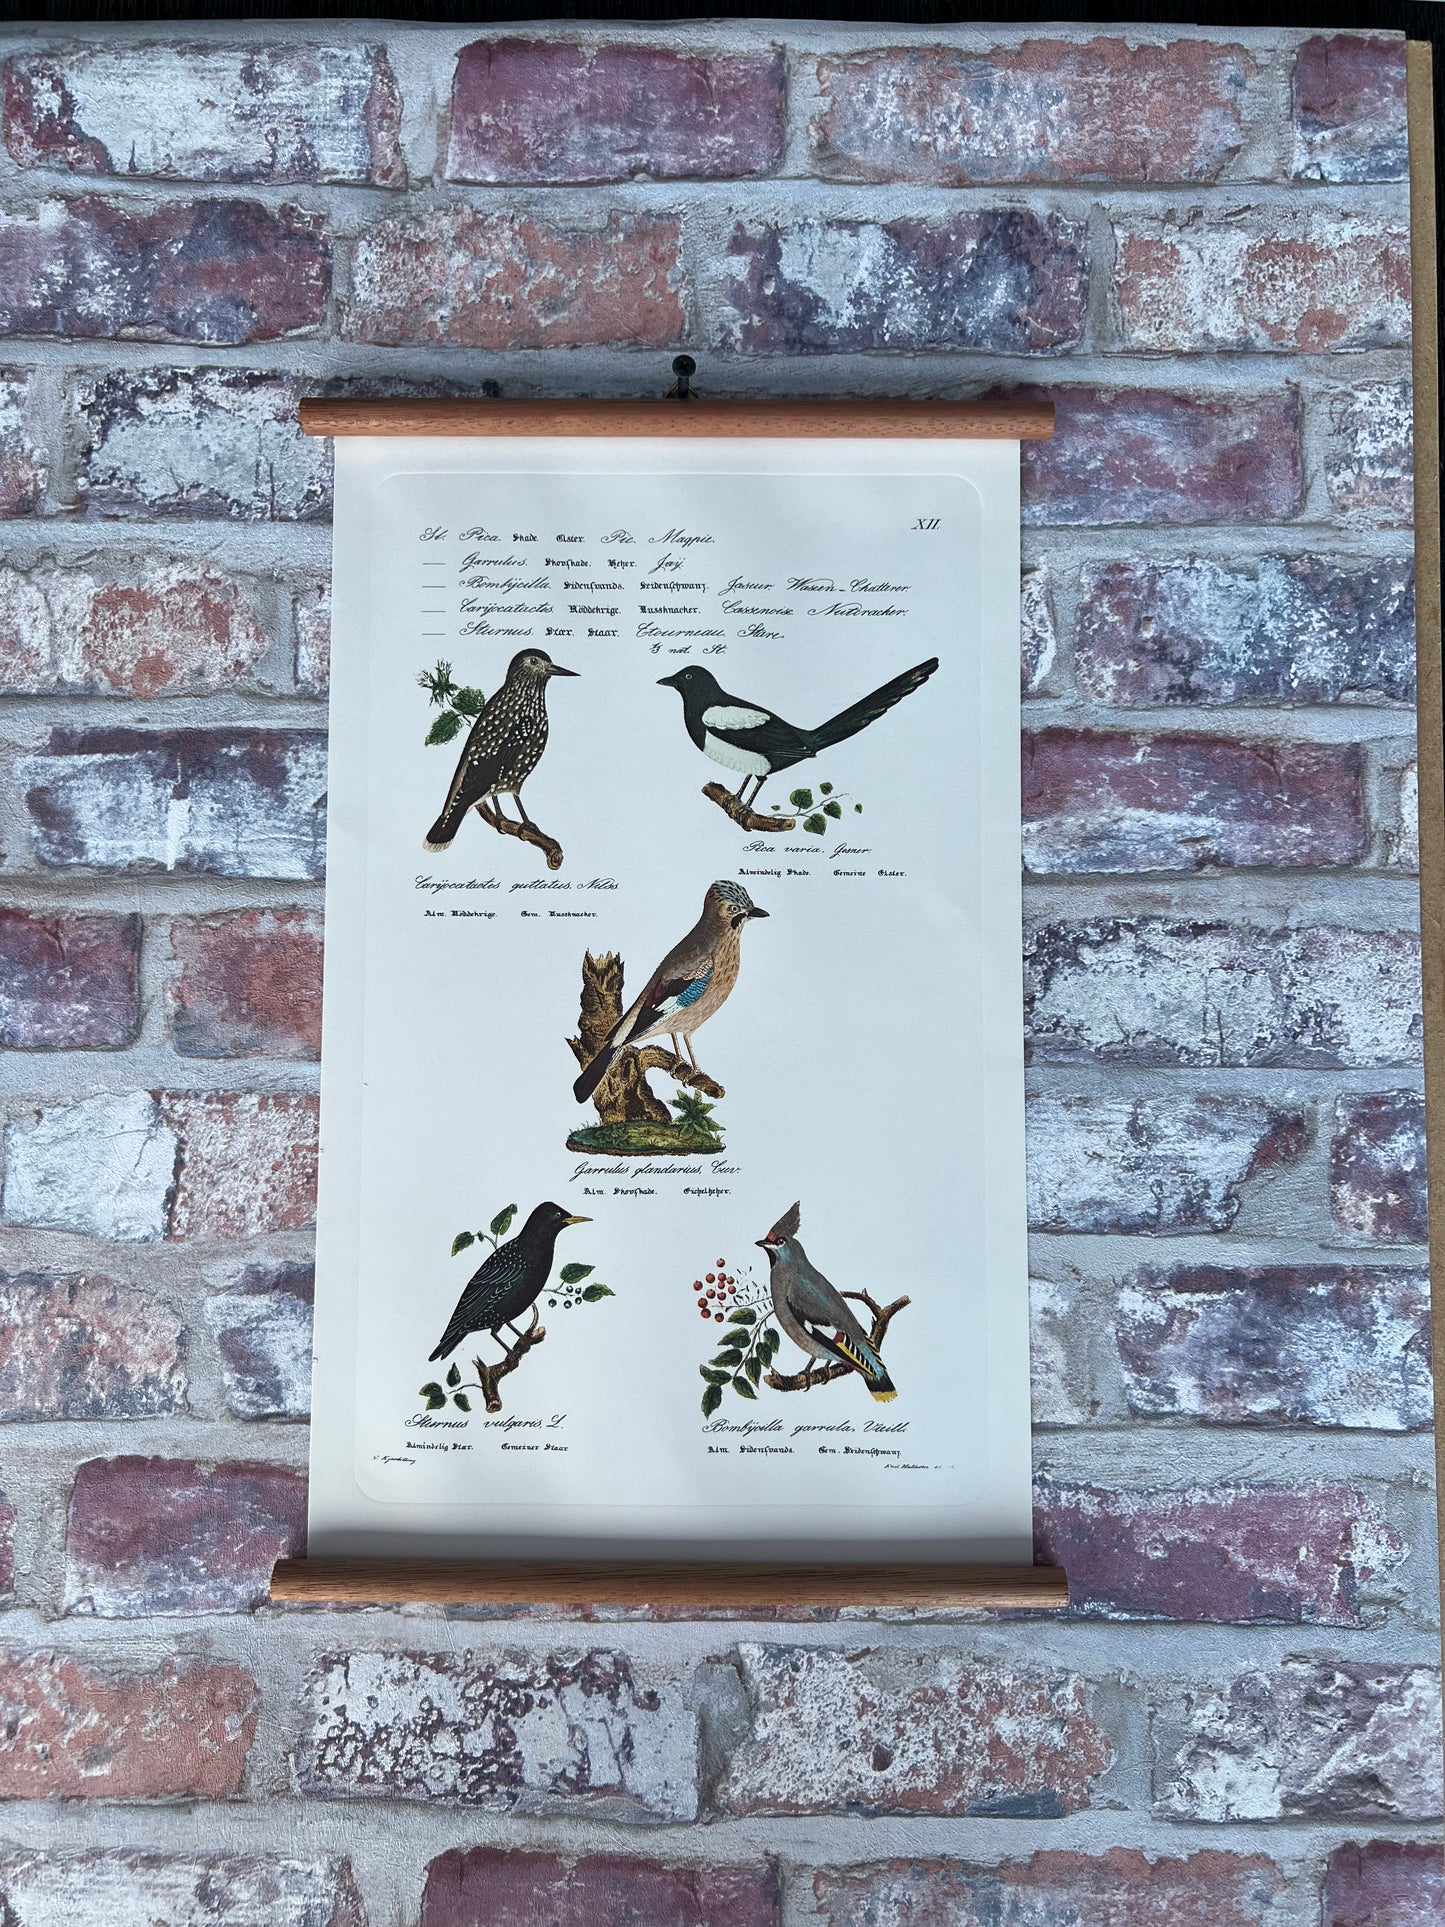 XII.
St. Pica. Skade. Elster. Pie. Magpie.
— Garrulus. Skovskade. Heher. Jaÿ.
— Bombÿcilla. Sidensvands. Seidenschwanz. Jaseur. Waxen-Chatterer.
— Carÿocatactes. Nöddekrige. Nussknacker. Cassenoix. Nutcracker.
— Sturnus. Stær. Staar. Etourneau. Stare.
nat. St.
Pica varia. Gesner.
Almindelig Skade. Gemeine Elster.
Carÿocatactes guttatus. Nilss.
Alm. Nöddekrige. Gem. Nussknacker.
Garrulus glandarius. Cuv.
Alm. Skovskade. Eichelheher.
Sturnus vulgaris. L.
Almindelig Stær. Gemeiner Staar.
Bombÿcilla garrula. Vieill.
Alm. Sidensvands. Gem. Seidenschwanz.